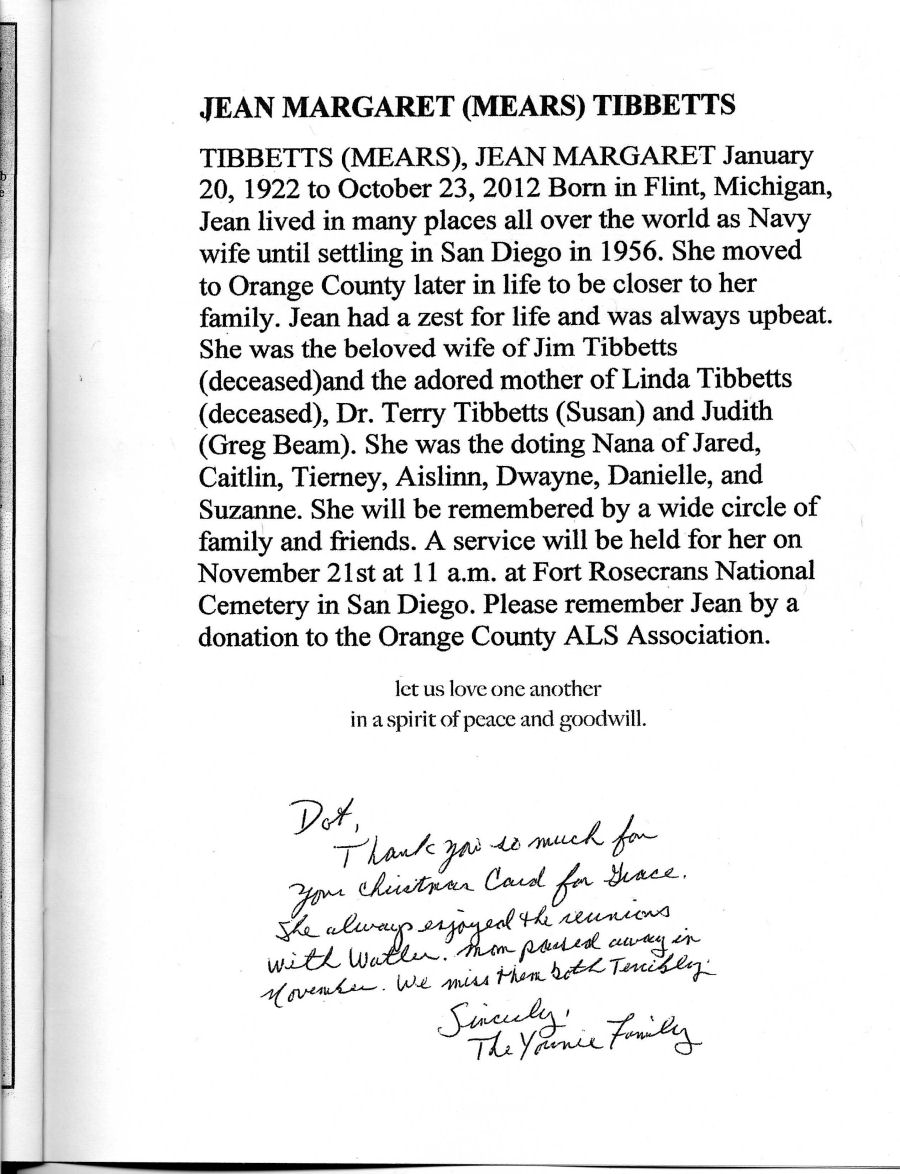 JEAN MARGARET (MEARS) TIBBETTS
TIBBETTS (MEARS), JEAN MARGARET January
20, 1922 to October 23, 2012 Born in Flint, Michigan,
Jean lived in many places all over the world as Navy
wife until settling in San Diego in 1956. She moved
to Orange County later in life to be closer to her
family. Jean had a zest for life and was always upbeat.
She was the beloved wife of Jim Tibbetts
(deceased)and the adored mother of Linda Tibbetts
(deceased), Dr. Terry Tibbetts (Susan) and Judith
(Greg Beam). She was the doting Nana of Jared,
Caitlin, Tierney, Aislinn, Dwayne, Danielle, and
Suzanne. She will be remembered by a wide circle of
family and friends. A service will be held for her on
November 21st at 11 a.m. at Fort Rosecrans National
Cemetery in San Diego. Please remember Jean by a
donation to the Orange County ALS Association.
let us love one another
in a spirit of peace and goodwill.
Dot,
Thank you so much for
your Christmas Card for Grace.
She always enjoyed the reunions
with Walter. Mom passed away in
November. We miss them both Terribly.
Sincerely,
The Younie Family